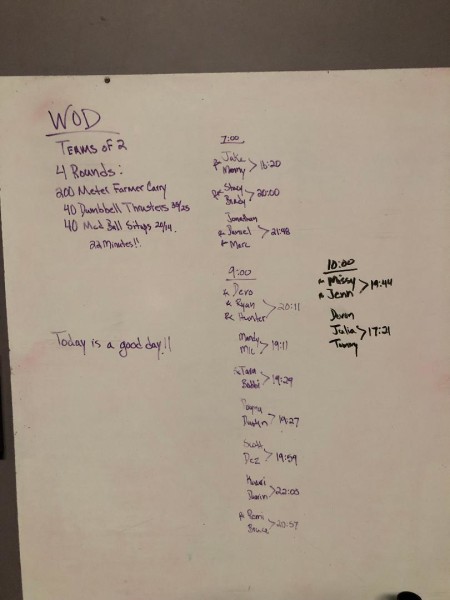 WOD
Teams of 2
4 Rounds:
200 Meter Farmer Carry
40 Dumbbell Thrusters 35/25
40 Med Ball Situps 20/14
22 Minutes!!
Today is a good day!!
7:00
Rx Jake
Manny > 18:20
Rx Stacy
Brady > 20:00
Jonathan
Rx Daniel > 21:48
Rx Marc
9:00
Rx Devo
Rx Ryan > 20:11
Rx Hunter
Mandy
Mic > 19:11
Rx Tara
Bobbi > 19:29
Dustyn > 19:27
Scott
Dez > 19:59
Darin > 22:05
Rx Remi
Bruce > 20:57
10:00
Rx Missy > 19:44
Rx Jenn
Devon
Julia > 17:21
Tammy